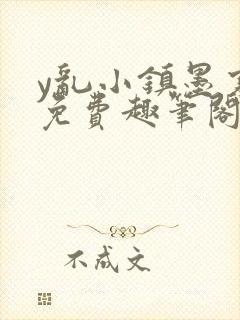 y乱小镇墨
免费趣笔阁
不成文